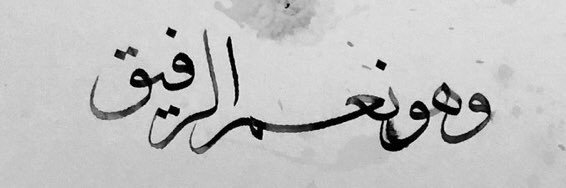 وهو نعم الرفيق